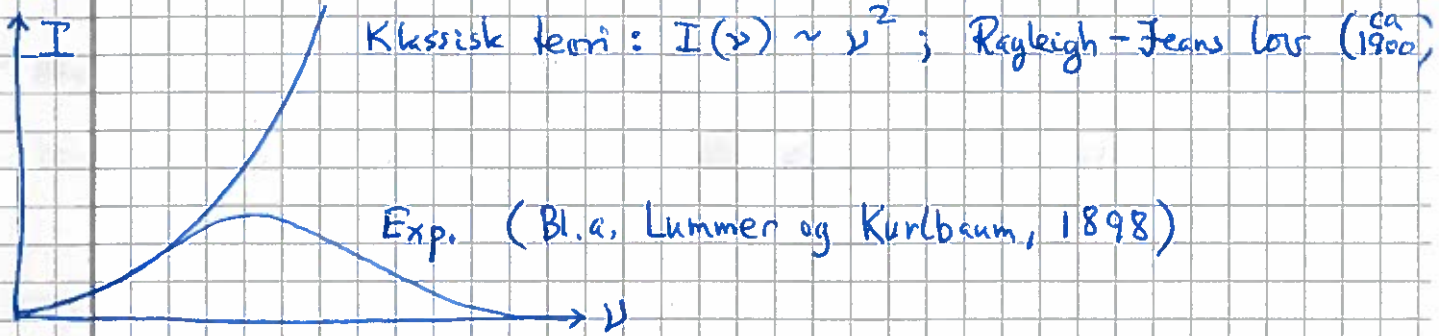 I
Klassisk teori : I(ν) ~ ν² ; Rayleigh-Jeans lov (ca 1900)
Exp. (Bl.a. Lummer og Kurlbaum, 1898)
ν